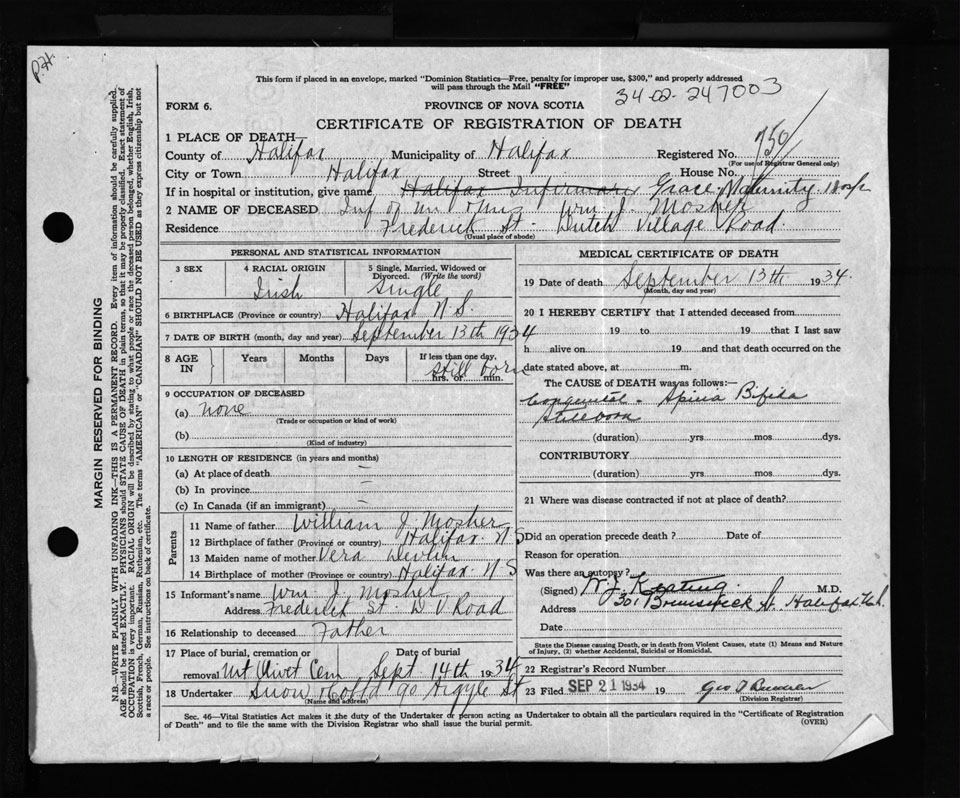 P.H.
This form if placed in an envelope, marked "Dominion Statistics—Free, penalty for improper use, $300," and properly addressed
will pass through the Mail "FREE"
34-02-247003
FORM 6.
PROVINCE OF NOVA SCOTIA
CERTIFICATE OF REGISTRATION OF DEATH
1 PLACE OF DEATH—
County of Halifax Municipality of Halifax Registered No. 750
(For use of Registrar General only)
City or Town Halifax Street House No.
If in hospital or institution, give name Halifax Infirmary Grace Maternity Hosp
2 NAME OF DECEASED Inf of Wm J. Mosher
Residence Frederick St. Dutch Village Road.
(Usual place of abode)
PERSONAL AND STATISTICAL INFORMATION
3 SEX
4 RACIAL ORIGIN
Irish
5 Single, Married, Widowed or
Divorced. (Write the word)
Single
6 BIRTHPLACE (Province or country) Halifax N.S.
7 DATE OF BIRTH (month, day and year) September 13th 1934
8 AGE
IN
Years Months Days
If less than one day,
still born
hrs. or min.
9 OCCUPATION OF DECEASED
(a) none
(Trade or occupation or kind of work)
(b)
(Kind of industry)
10 LENGTH OF RESIDENCE (in years and months)
(a) At place of death —
(b) In province —
(c) In Canada (if an immigrant) —
Parents
11 Name of father William J. Mosher
12 Birthplace of father (Province or country) Halifax. N S
13 Maiden name of mother Vera Devlin
14 Birthplace of mother (Province or country) Halifax. N S
15 Informant's name Wm J. Mosher
Address Frederick St. D V Road
16 Relationship to deceased Father
17 Place of burial, cremation or Date of burial
removal Mt Olivet Cem Sept 14th 1934
18 Undertaker Snow & Co Ltd 90 Argyle St
(Name and address)
MEDICAL CERTIFICATE OF DEATH
19 Date of death September 13th 1934.
(Month, day and year)
20 I HEREBY CERTIFY that I attended deceased from
19 to 19 that I last saw
h alive on 19 and that death occurred on the
date stated above, at m.
The CAUSE of DEATH was as follows:—
Congenital - Spina Bifida
Stillborn
(duration) yrs mos dys.
CONTRIBUTORY
(duration) yrs mos dys.
21 Where was disease contracted if not at place of death?
Did an operation precede death ? Date of
Reason for operation
Was there an autopsy?
(Signed) W. J. Keating. M.D.
Address 301 Brunswick St. Halifax N.S.
Date
State the Disease causing Death, or in death from Violent Causes, state (1) Means and Nature
of Injury, (2) whether Accidental, Suicidal or Homicidal.
22 Registrar's Record Number
23 Filed SEP 21 1934 19 Geo
(Division Registrar)
Sec. 46—Vital Statistics Act makes it the duty of the Undertaker or person acting as Undertaker to obtain all the particulars required in the "Certificate of Registration
of Death" and to file the same with the Division Registrar who shall issue the burial permit.
(OVER)
MARGIN RESERVED FOR BINDING
N.B.—WRITE PLAINLY WITH UNFADING INK—THIS IS A PERMANENT RECORD. Every item of information should be carefully supplied.
AGE should be stated EXACTLY. PHYSICIANS should STATE CAUSE OF DEATH in plain terms, so that it may be properly classified. Exact statement of
OCCUPATION is very important. RACIAL ORIGIN will be described by stating to what people or race the deceased person belonged, whether English, Irish,
Scottish, French, German, Russian, Ruthenian, etc. The terms "AMERICAN" or "CANADIAN" SHOULD NOT BE USED as they express citizenship but not
a race or people. See instructions on back of certificate.